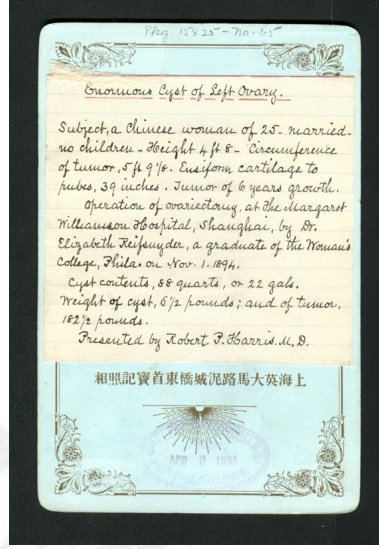 Pkg 15825 - no. 65
Enormous Cyst of Left Ovary.
Subject, a Chinese woman of 25 - married -
no children - Height 4 ft 8 - Circumference
of tumor, 5 ft 9 1/8. Ensiform cartilage to
pubes, 39 inches. Tumor of 6 years growth.
Operation of ovariectomy, at the Margaret
Williamson Hospital, Shanghai, by Dr.
Elizabeth Reifsnyder, a graduate of the Woman's
College, Phila. on Nov. 1. 1894.
Cyst contents, 88 quarts, or 22 gals.
Weight of cyst, 6 1/2 pounds; and of tumor,
182 1/2 pounds.
Presented by Robert P. Harris, M.D.
相照記寶首東橋城泥路馬大英海上
APR 1895
PHILADELPHIA